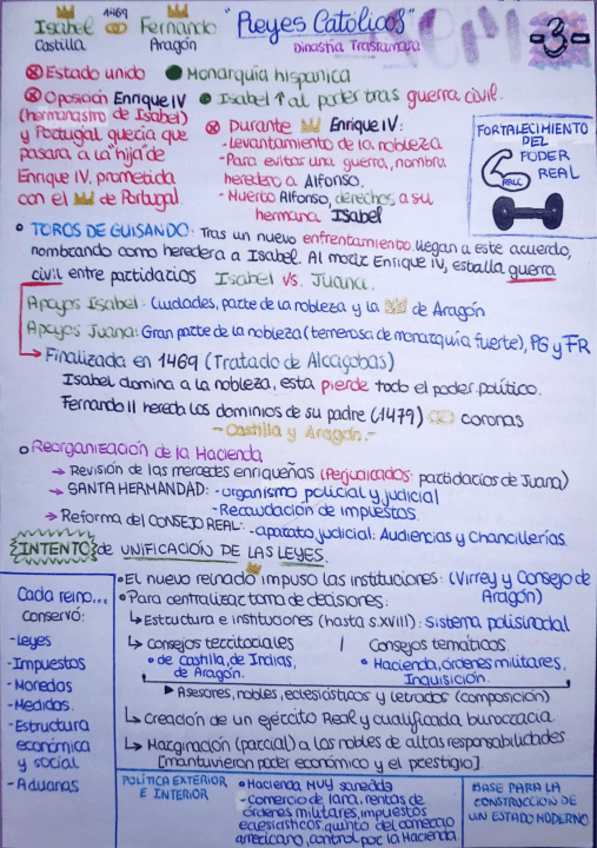 1469
Isabel Fernando "Reyes Católicos" -3-
Castilla Aragón Dinastía Trastámara
Estado unido Monarquía hispánica
Oposición Enrique IV Isabel ↑ al poder tras guerra civil.
(hermanastro de Isabel)
y Portugal quería que
pasara a la "hija" de
Enrique IV, prometida
con el de Portugal.
Durante Enrique IV:
-Levantamiento de la nobleza
-Para evitar una guerra, nombra
heredero a Alfonso.
- Muerto Alfonso, derechos a su
hermana Isabel
FORTALECIMIENTO
DEL
PODER
REAL
RRCC
TOROS DE GUISANDO: Tras un nuevo enfrentamiento llegan a este acuerdo,
nombrando como heredera a Isabel. Al morir Enrique IV, estalla guerra
civil entre partidarios Isabel vs. Juana.
Apoyos Isabel: Ciudades, parte de la nobleza y la de Aragón
Apoyos Juana: Gran parte de la nobleza (temerosa de monarquía fuerte), PG y FR
Finalizada en 1469 (Tratado de Alcaçobas)
Isabel domina a la nobleza, esta pierde todo el poder político.
Fernando II hereda los dominios de su padre (1479) coronas
-Castilla y Aragón.-
Reorganización de la Hacienda
→ Revisión de las mercedes enriqueñas (Perjudicados: partidarios de Juana)
→ SANTA HERMANDAD: -organismo policial y judicial
-Recaudación de impuestos
→ Reforma del CONSEJO REAL: -aparato judicial: Audiencias y Chancillerías.
INTENTO de UNIFICACIÓN DE LAS LEYES.
Cada reino...
conservó:
-Leyes
-Impuestos
-Monedas
-Medidas.
-Estructura
económica
y social
-Aduanas
El nuevo reinado impuso las instituciones: (Virrey y Consejo de
Aragón)
Para centralizar toma de decisiones:
↳ Estructura e instituciones (hasta s.XVIII): Sistema polisinodal
↳ Consejos territoriales | Consejos temáticos.
• de Castilla, de Indias, • Hacienda, órdenes militares,
de Aragón. Inquisición.
▶ Asesores, nobles, eclesiásticos y letrados (composición)
↳ Creación de un ejército Real y cualificada burocracia
↳ Marginación (parcial) a los nobles de altas responsabilidades
[mantuvieron poder económico y el prestigio].
POLÍTICA EXTERIOR
E INTERIOR
• Hacienda MUY saneada
-comercio de lana, rentas de
órdenes militares, impuestos
eclesiásticos, quinto del comercio
americano, control por la Hacienda
BASE PARA LA
CONSTRUCCIÓN DE
UN ESTADO MODERNO